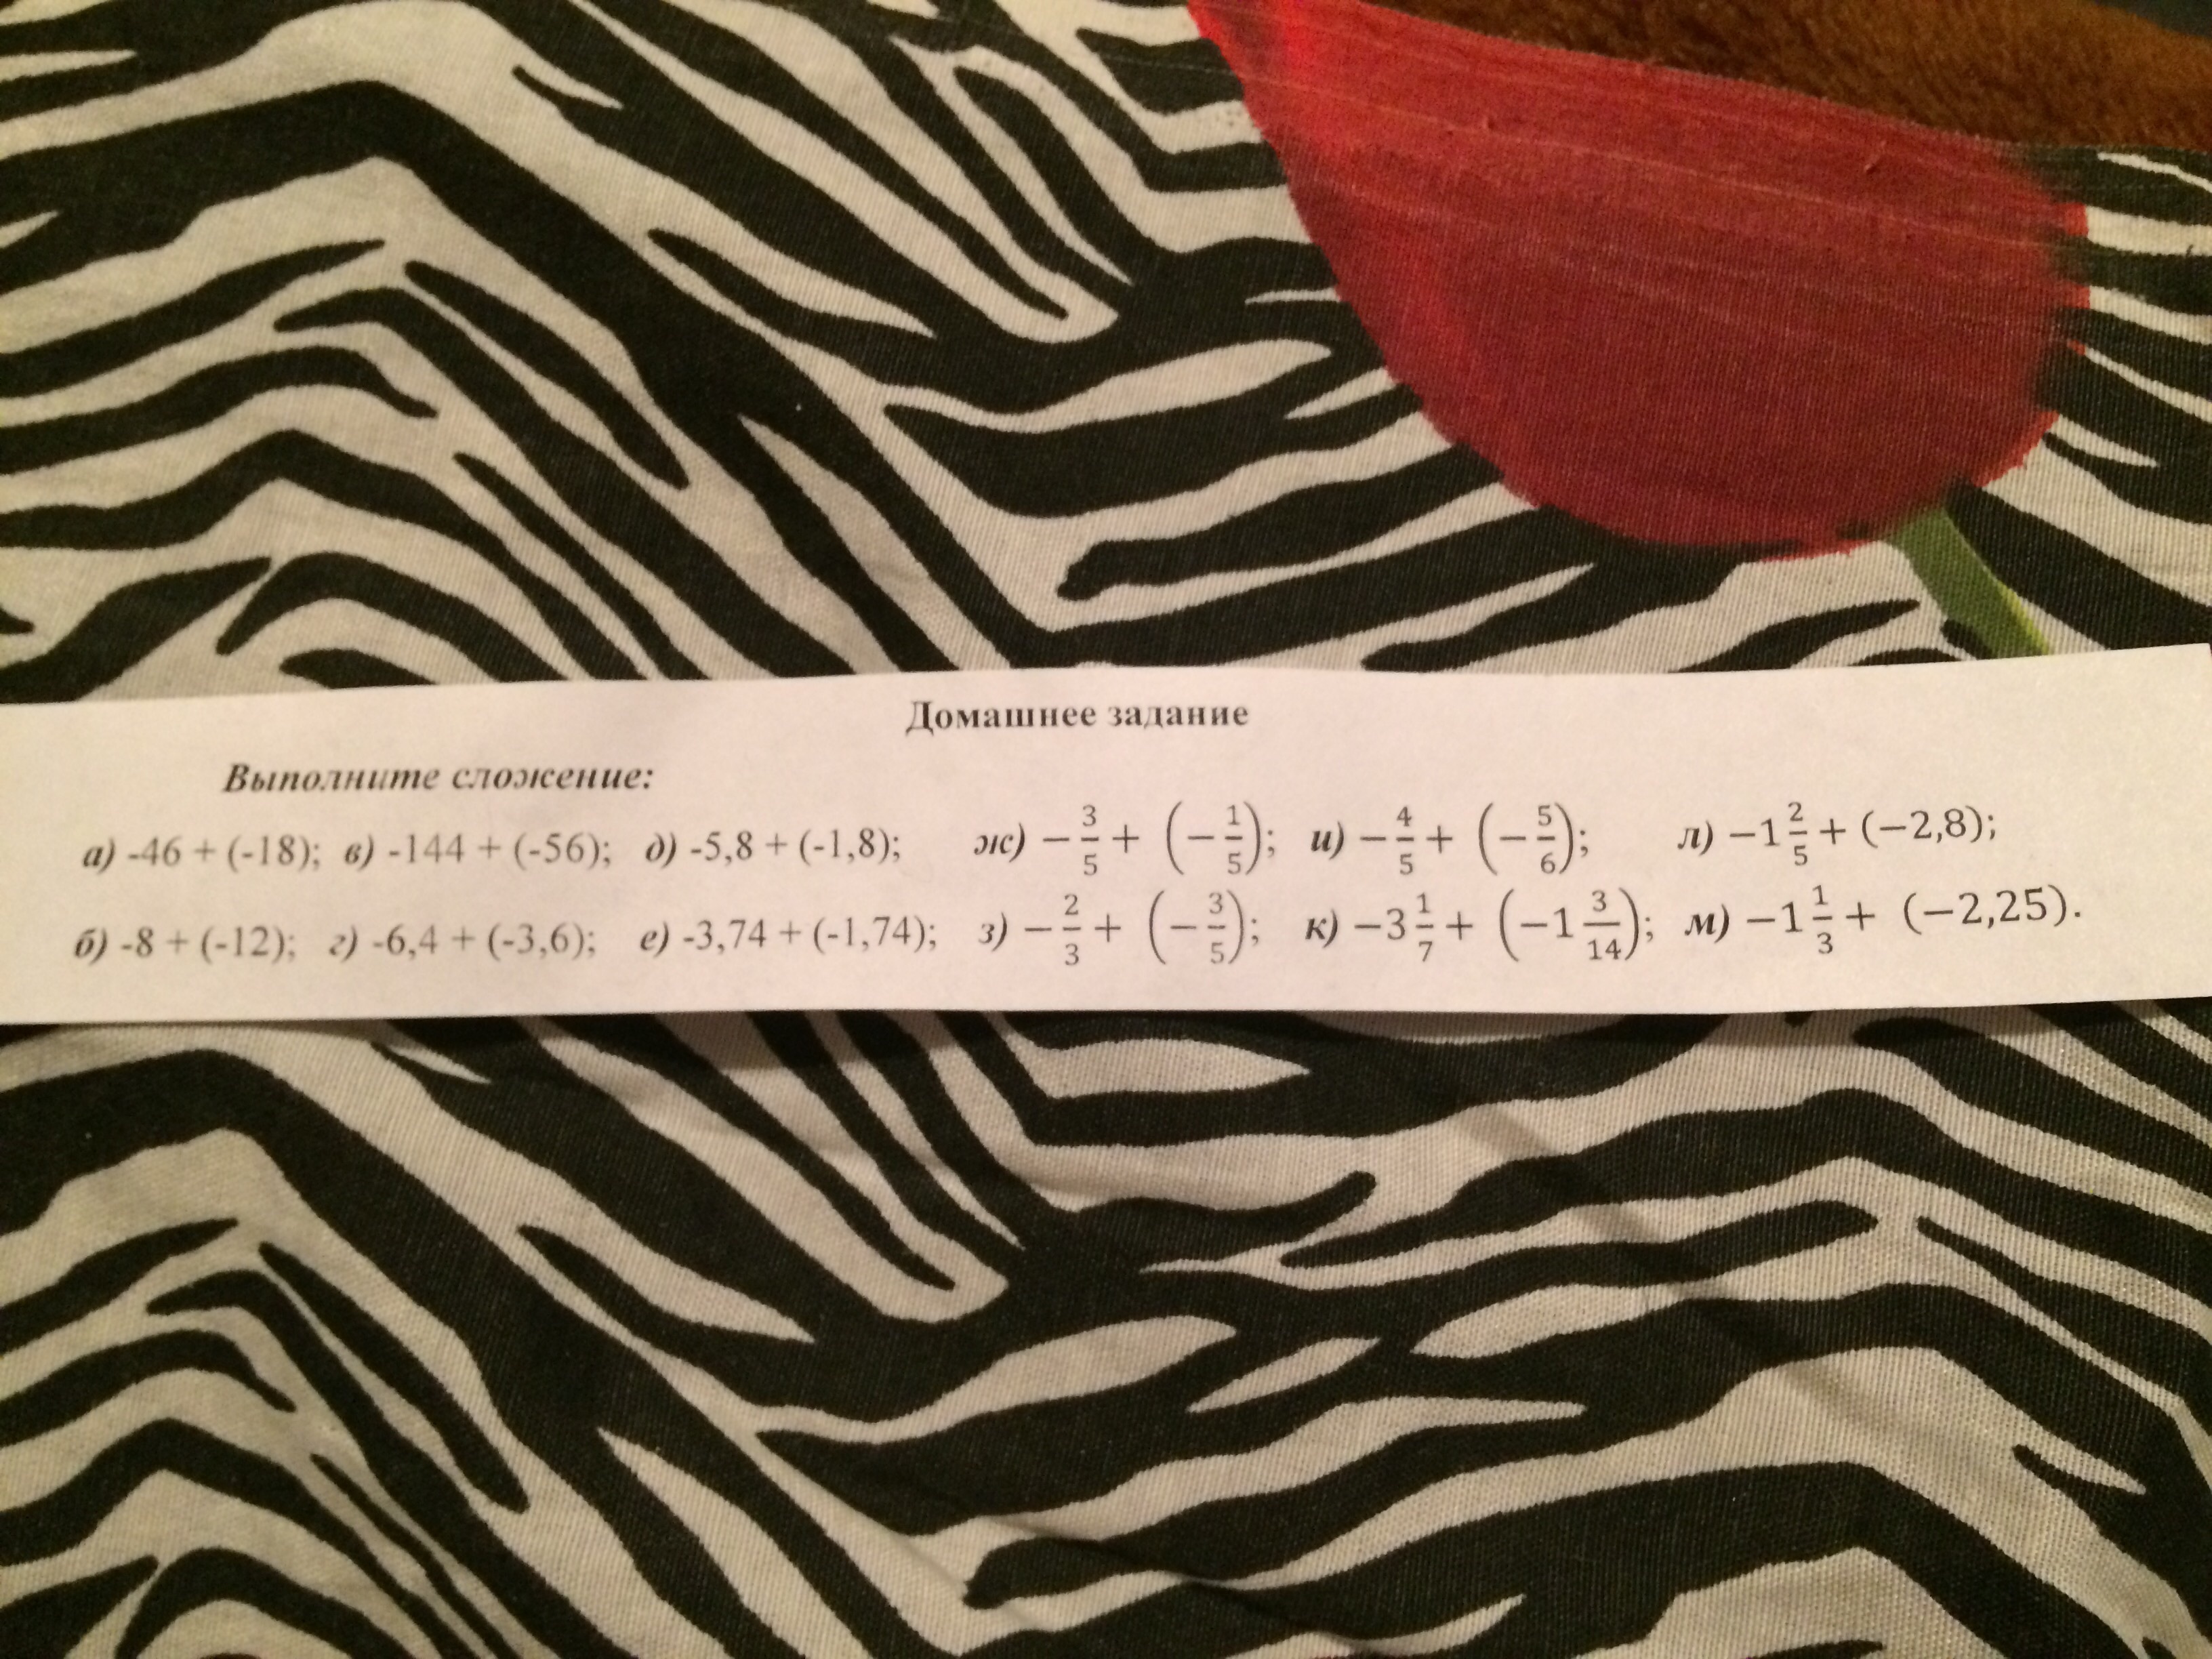 Домашнее задание
Выполните сложение:
а) -46 + (-18); в) -144 + (-56); д) -5,8 + (-1,8); ж) −3/5 + (−1/5); и) −4/5 + (−5/6); л) −1 2/5 + (−2,8);
б) -8 + (-12); г) -6,4 + (-3,6); е) -3,74 + (-1,74); з) −2/3 + (−3/5); к) −3 1/7 + (−1 3/14); м) −1 1/3 + (−2,25).